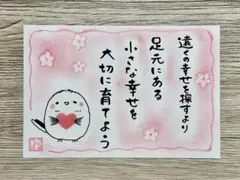 遠くの幸せを探すより
足元にある
小さな幸せを
大切に育てよう
ゆ